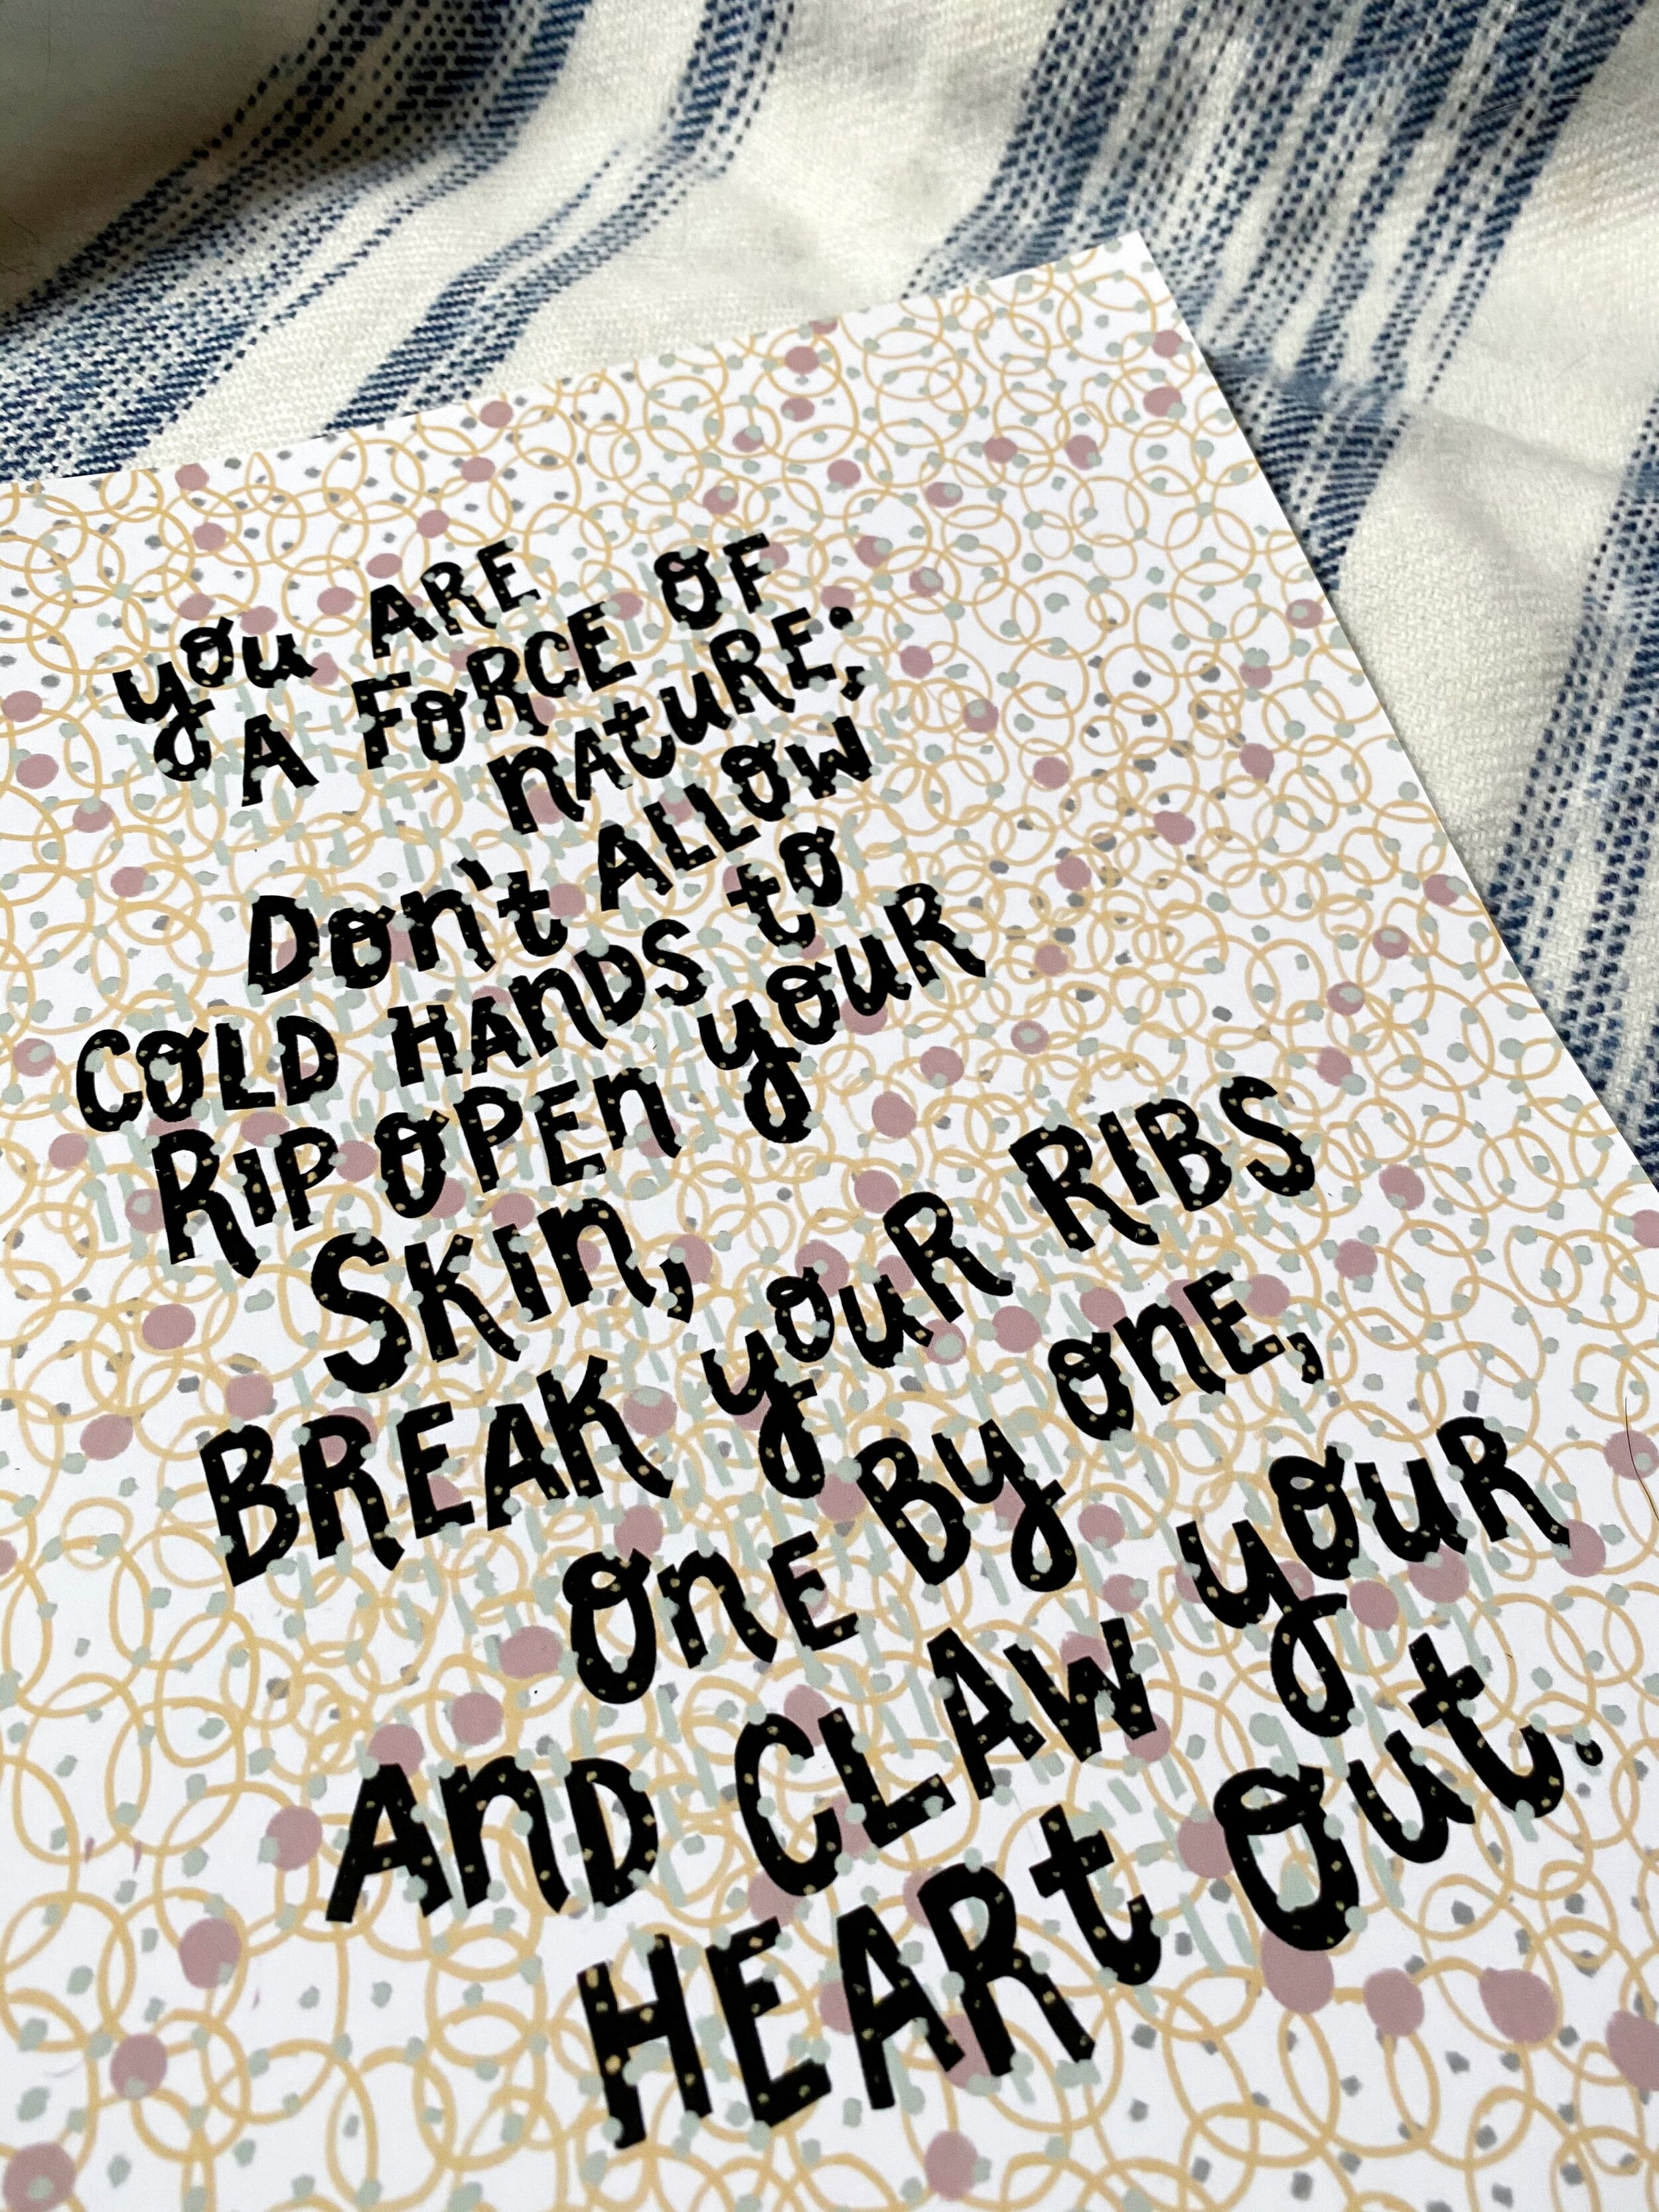 you ARE
A FORCE OF
nAtuRE;
Don't ALLOW
COLD HAnDS to
RIP OPEn youR
SKIn,
BREAK youR RIBS
OnE By OnE,
AnD CLAW youR
HEARt Out.